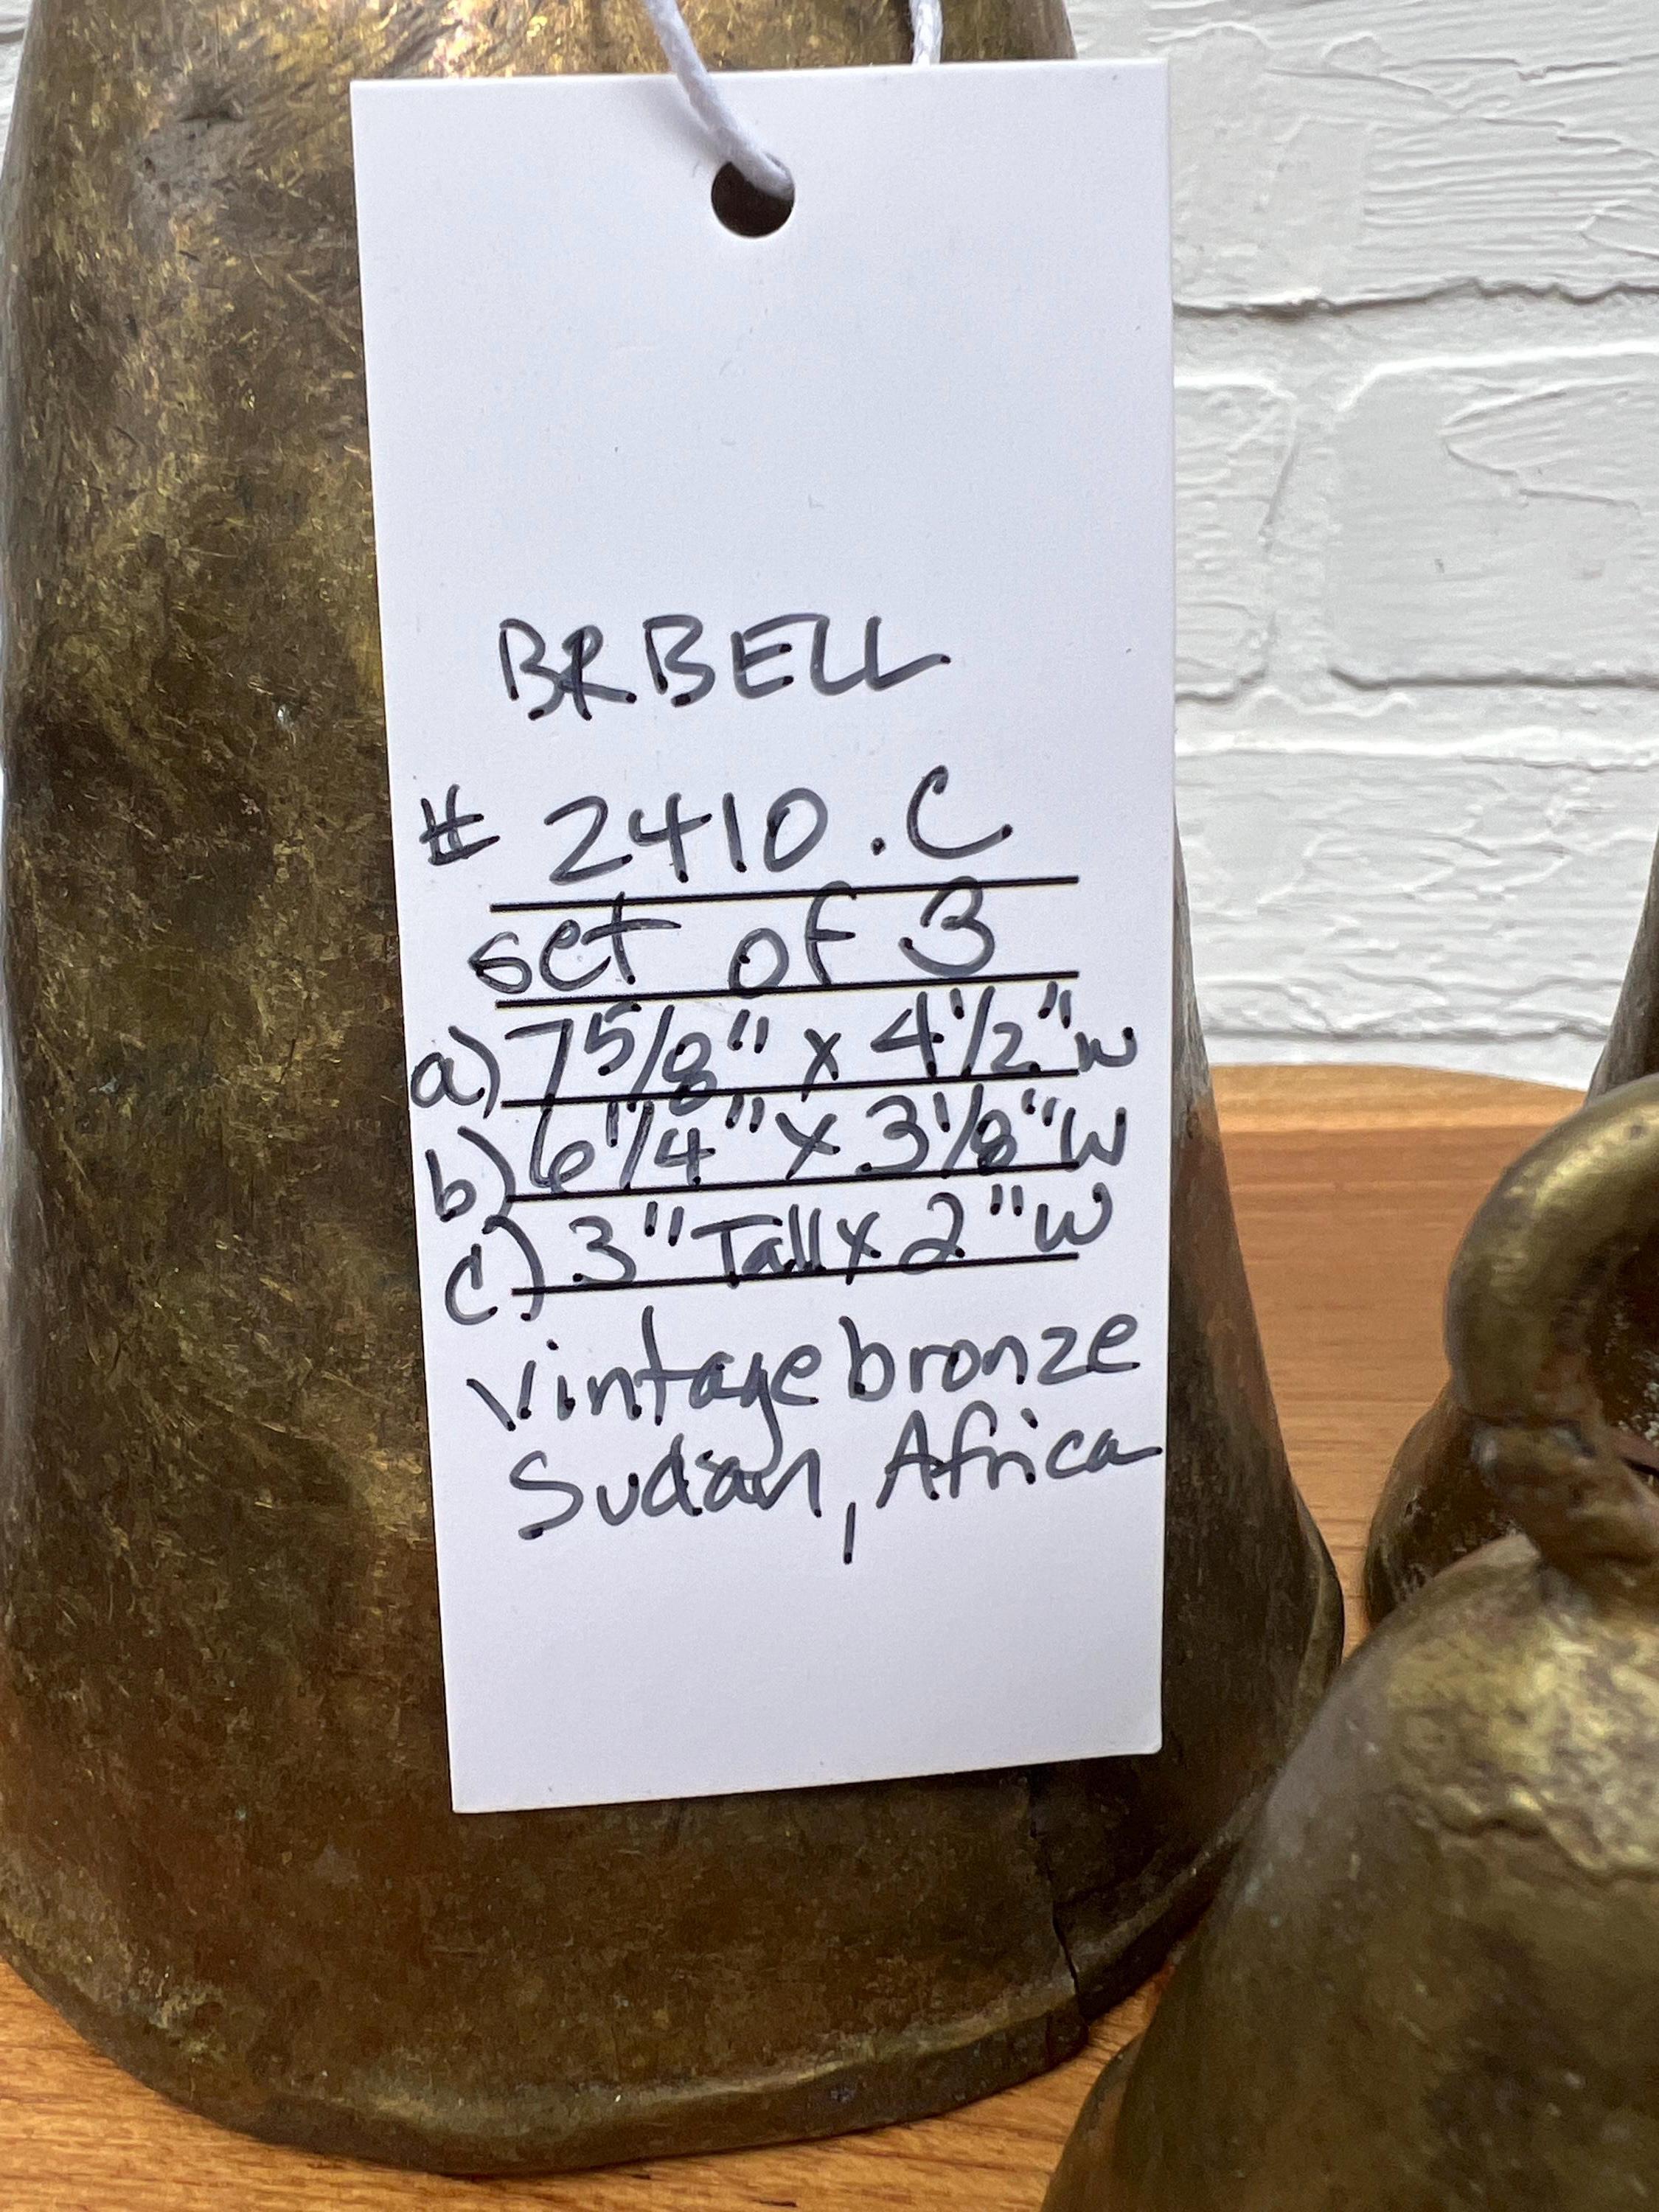 BRBELL
# 2410.C
set of 3
a) 7 5/8" x 4 1/2" W
b) 6 1/4" x 3 1/8" W
c) 3" Tall x 2" W
Vintage bronze
Sudan, Africa